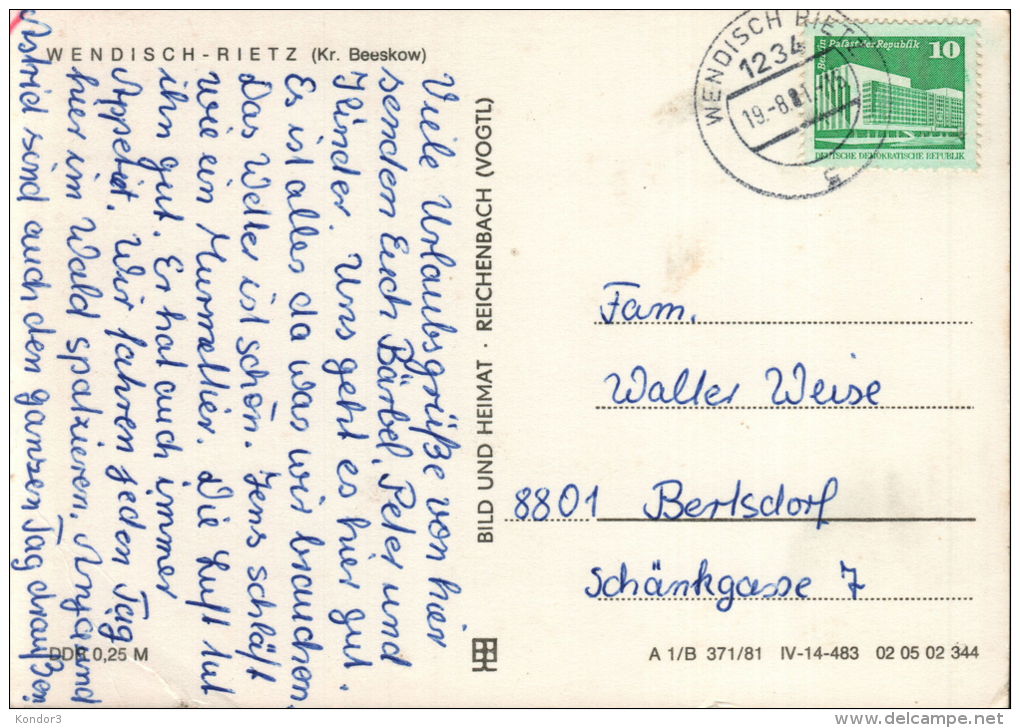 WENDISCH-RIETZ (Kr. Beeskow)
Viele Urlaubsgrüße von hier
senden Euch Bärbel, Peter und
Kinder. Uns geht es hier gut.
Es ist alles da was wir brauchen.
Das Wetter ist schön. Jens schläft
wie ein Murmeltier. Die Luft tut
ihn gut. Er hat auch immer
Appetit. Wir fahren jeden Tag
hier im Wald spatzieren. Anja und
Astrid sind auch den ganzen Tag draußen.
DDR 0,25 M
BILD UND HEIMAT · REICHENBACH (VOGTL)
WENDISCH RIETZ
1234
19.-8.81.-
5
Berlin Palast der Republik 10
DEUTSCHE DEMOKRATISCHE REPUBLIK
Fam.
Walter Weise
8801 Bertsdorf
Schänkgasse 7
A 1/B 371/81 IV-14-483 02 05 02 344
Kondor3
www.delcampe.net